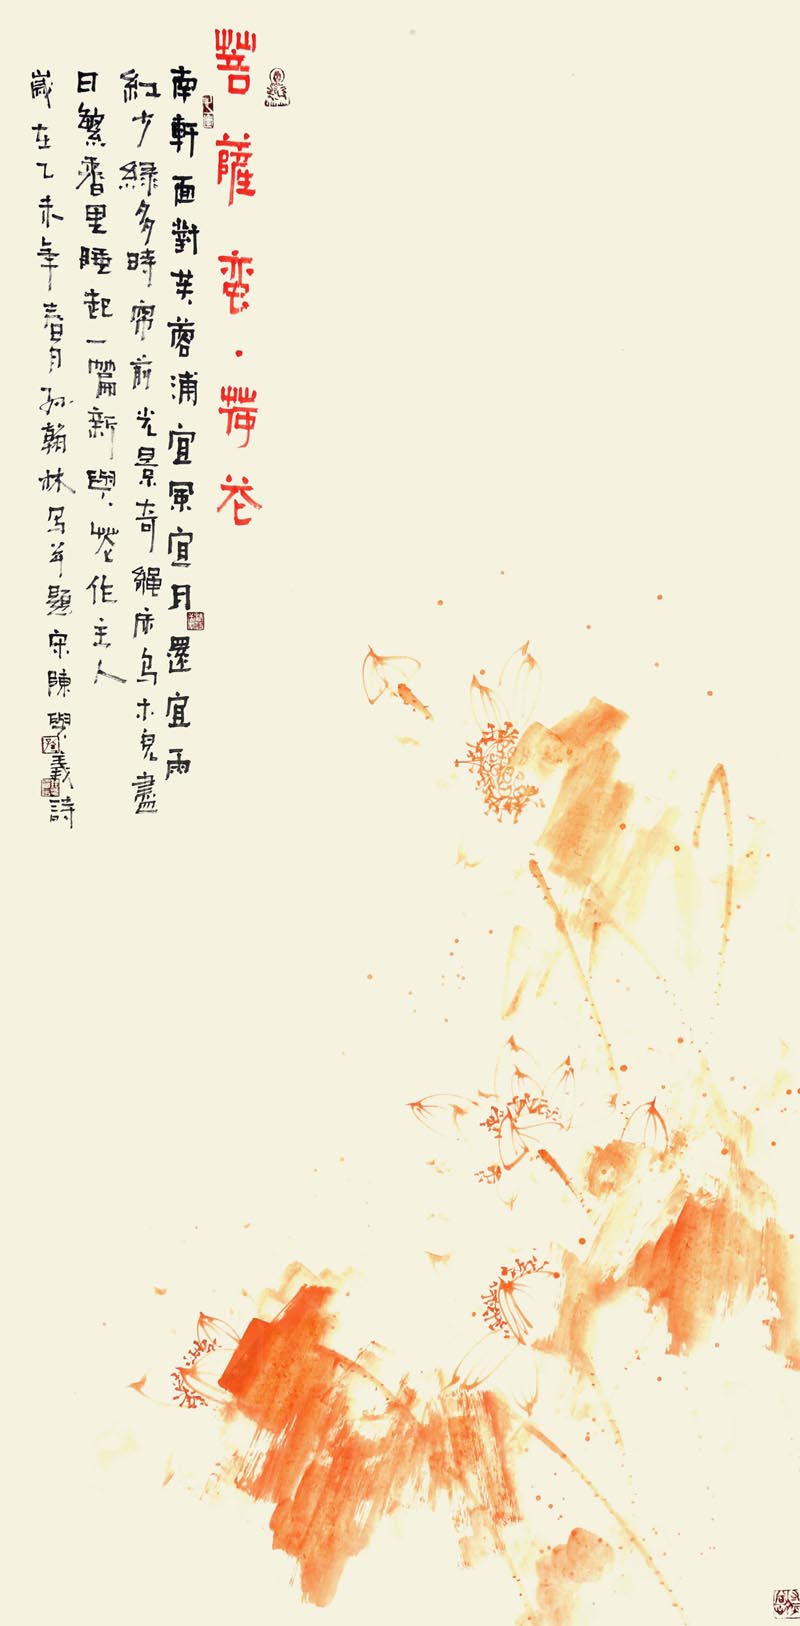 菩薩蛮·荷花
南軒面對芙蓉浦宜風宜月還宜雨
紅少綠多時帘前光景奇繩床烏木几盡
日繁香里睡起一篇新與花作主人
歲在乙未年春月孙翰林写并題宋陳與義詩